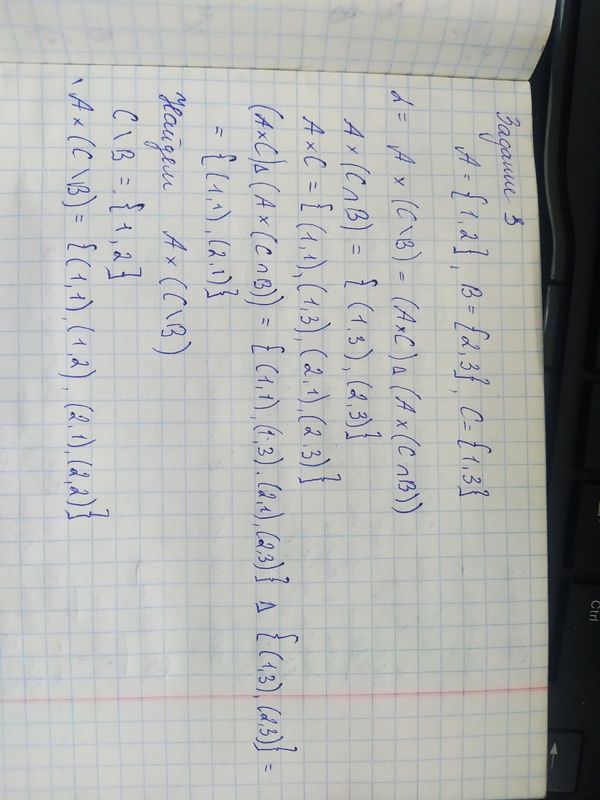 Задание 3
A = {1,2}, B = {2,3}, C = {1,3}
L = A × (C\B) = (A×C)Δ(A×(C∩B))
A × (C∩B) = {(1,3),(2,3)}
A×C = {(1,1),(1,3),(2,1),(2,3)}
(A×C)Δ(A×(C∩B)) = {(1,1),(1,3),(2,1),(2,3)} Δ {(1,3),(2,3)} =
= {(1,1),(2,1)}
Найдем A×(C\B)
C\B = {1,2}
A×(C\B) = {(1,1),(1,2),(2,1),(2,2)}
Ctrl